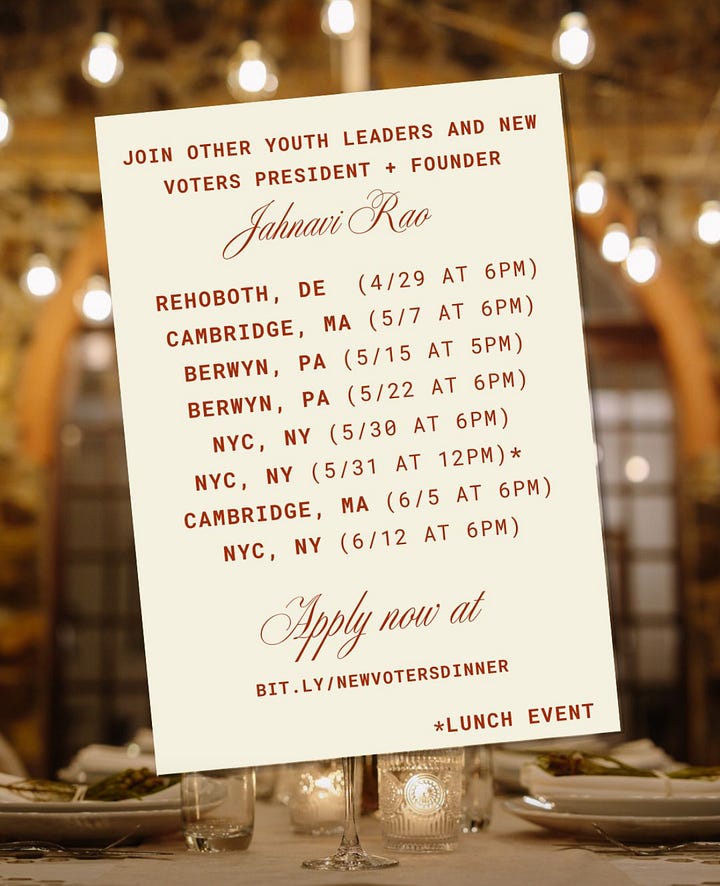 JOIN OTHER YOUTH LEADERS AND NEW
VOTERS PRESIDENT + FOUNDER
Jahnavi Rao
REHOBOTH, DE (4/29 AT 6PM)
CAMBRIDGE, MA (5/7 AT 6PM)
BERWYN, PA (5/15 AT 5PM)
BERWYN, PA (5/22 AT 6PM)
NYC, NY (5/30 AT 6PM)
NYC, NY (5/31 AT 12PM)*
CAMBRIDGE, MA (6/5 AT 6PM)
NYC, NY (6/12 AT 6PM)
Apply now at
BIT.LY/NEWVOTERSDINNER
*LUNCH EVENT